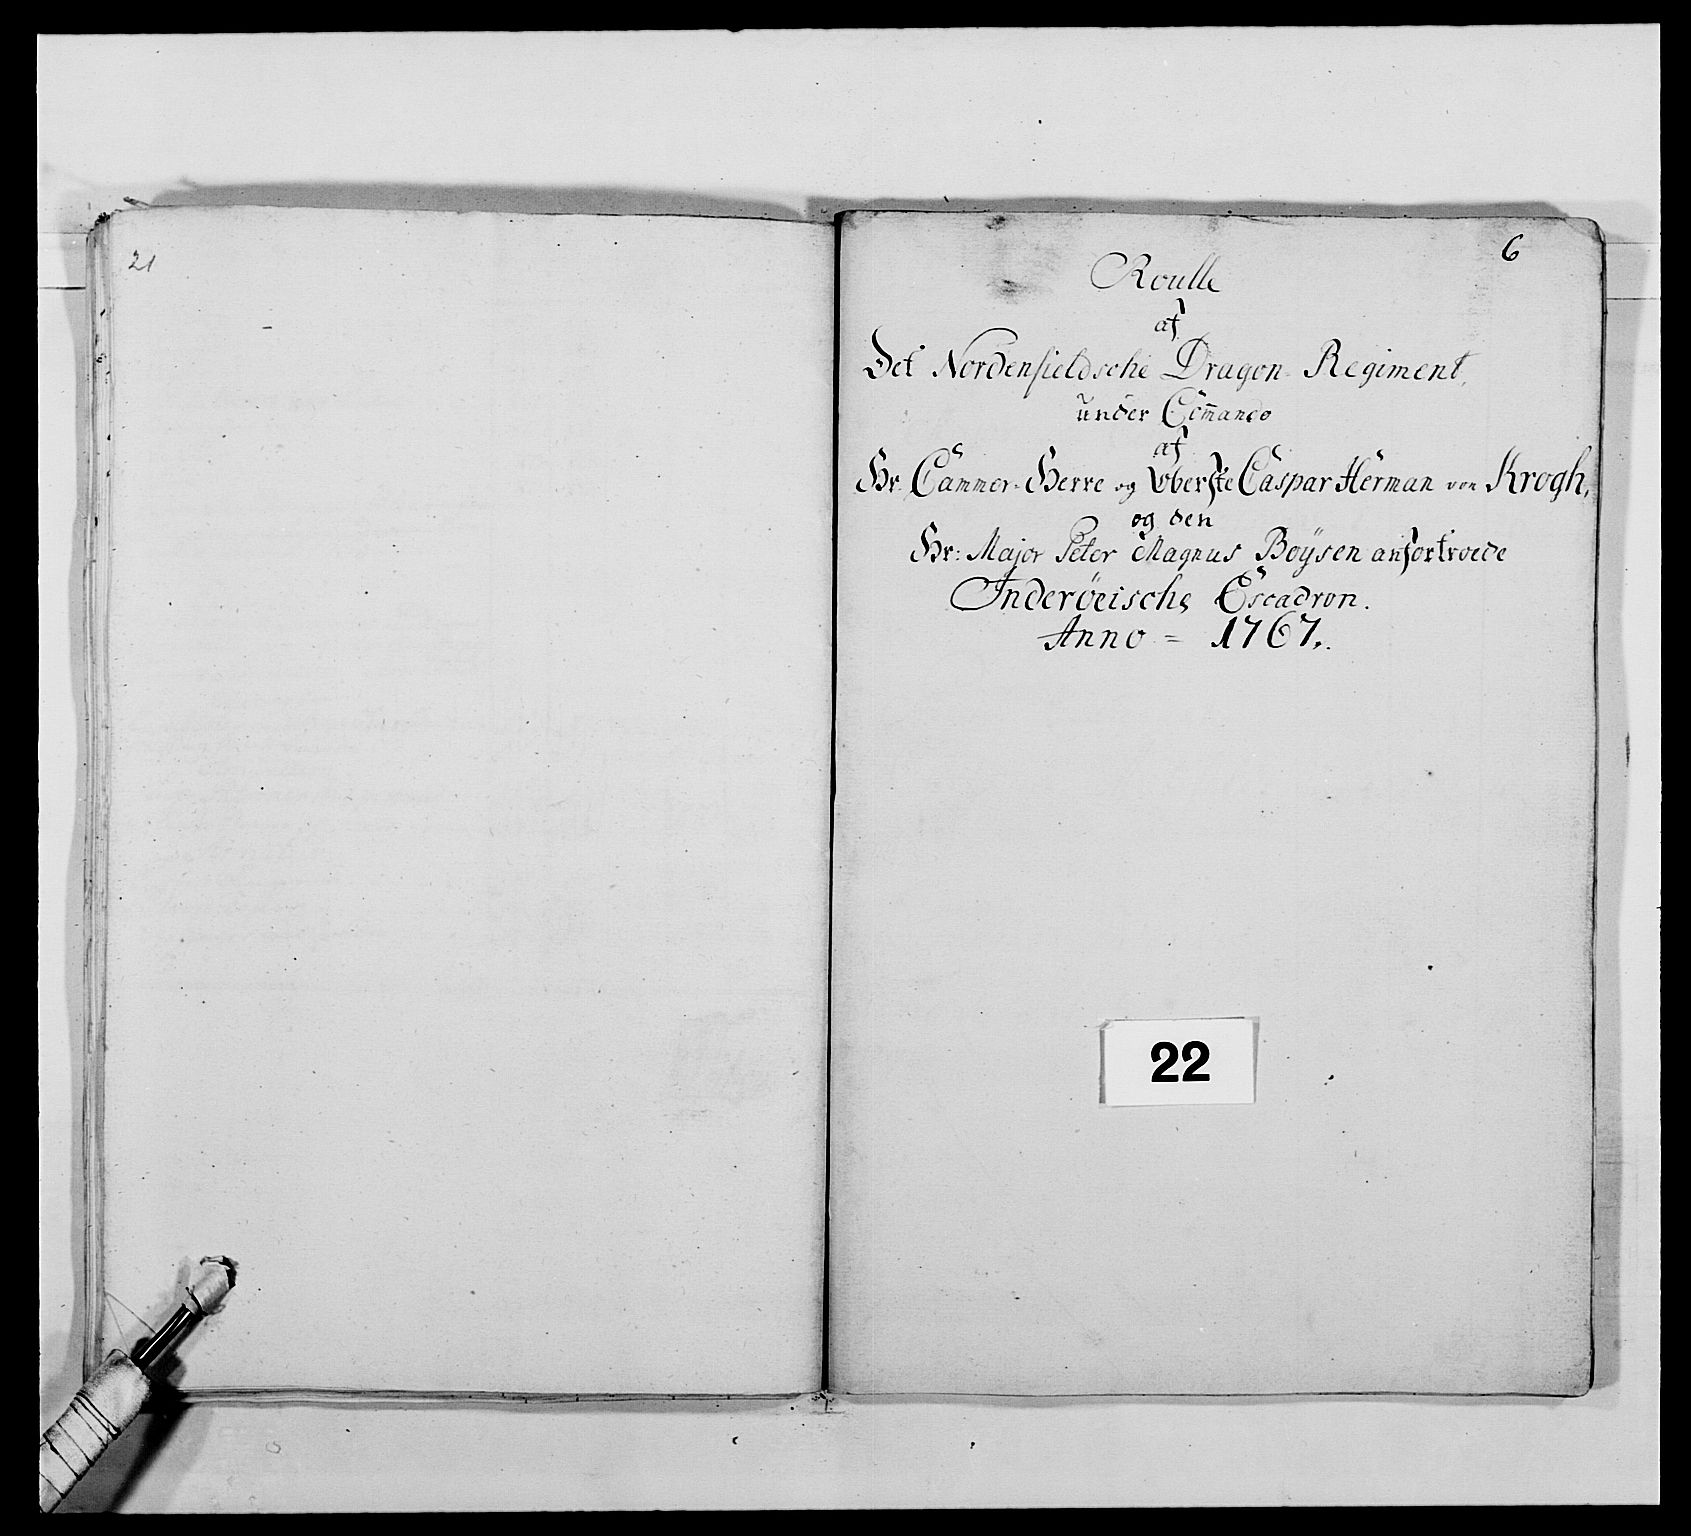 21
6
Roulle
af
Det Nordenfieldsche Dragon-Regiment,
under Com̄ando
af
Hr. Cammer-Herre og Oberste Caspar Herman von Krogh,
og den
Hr: Major Peter Magnus Boÿsen anfortroede
Inderöeische Escadron.
Anno = 1767.
22